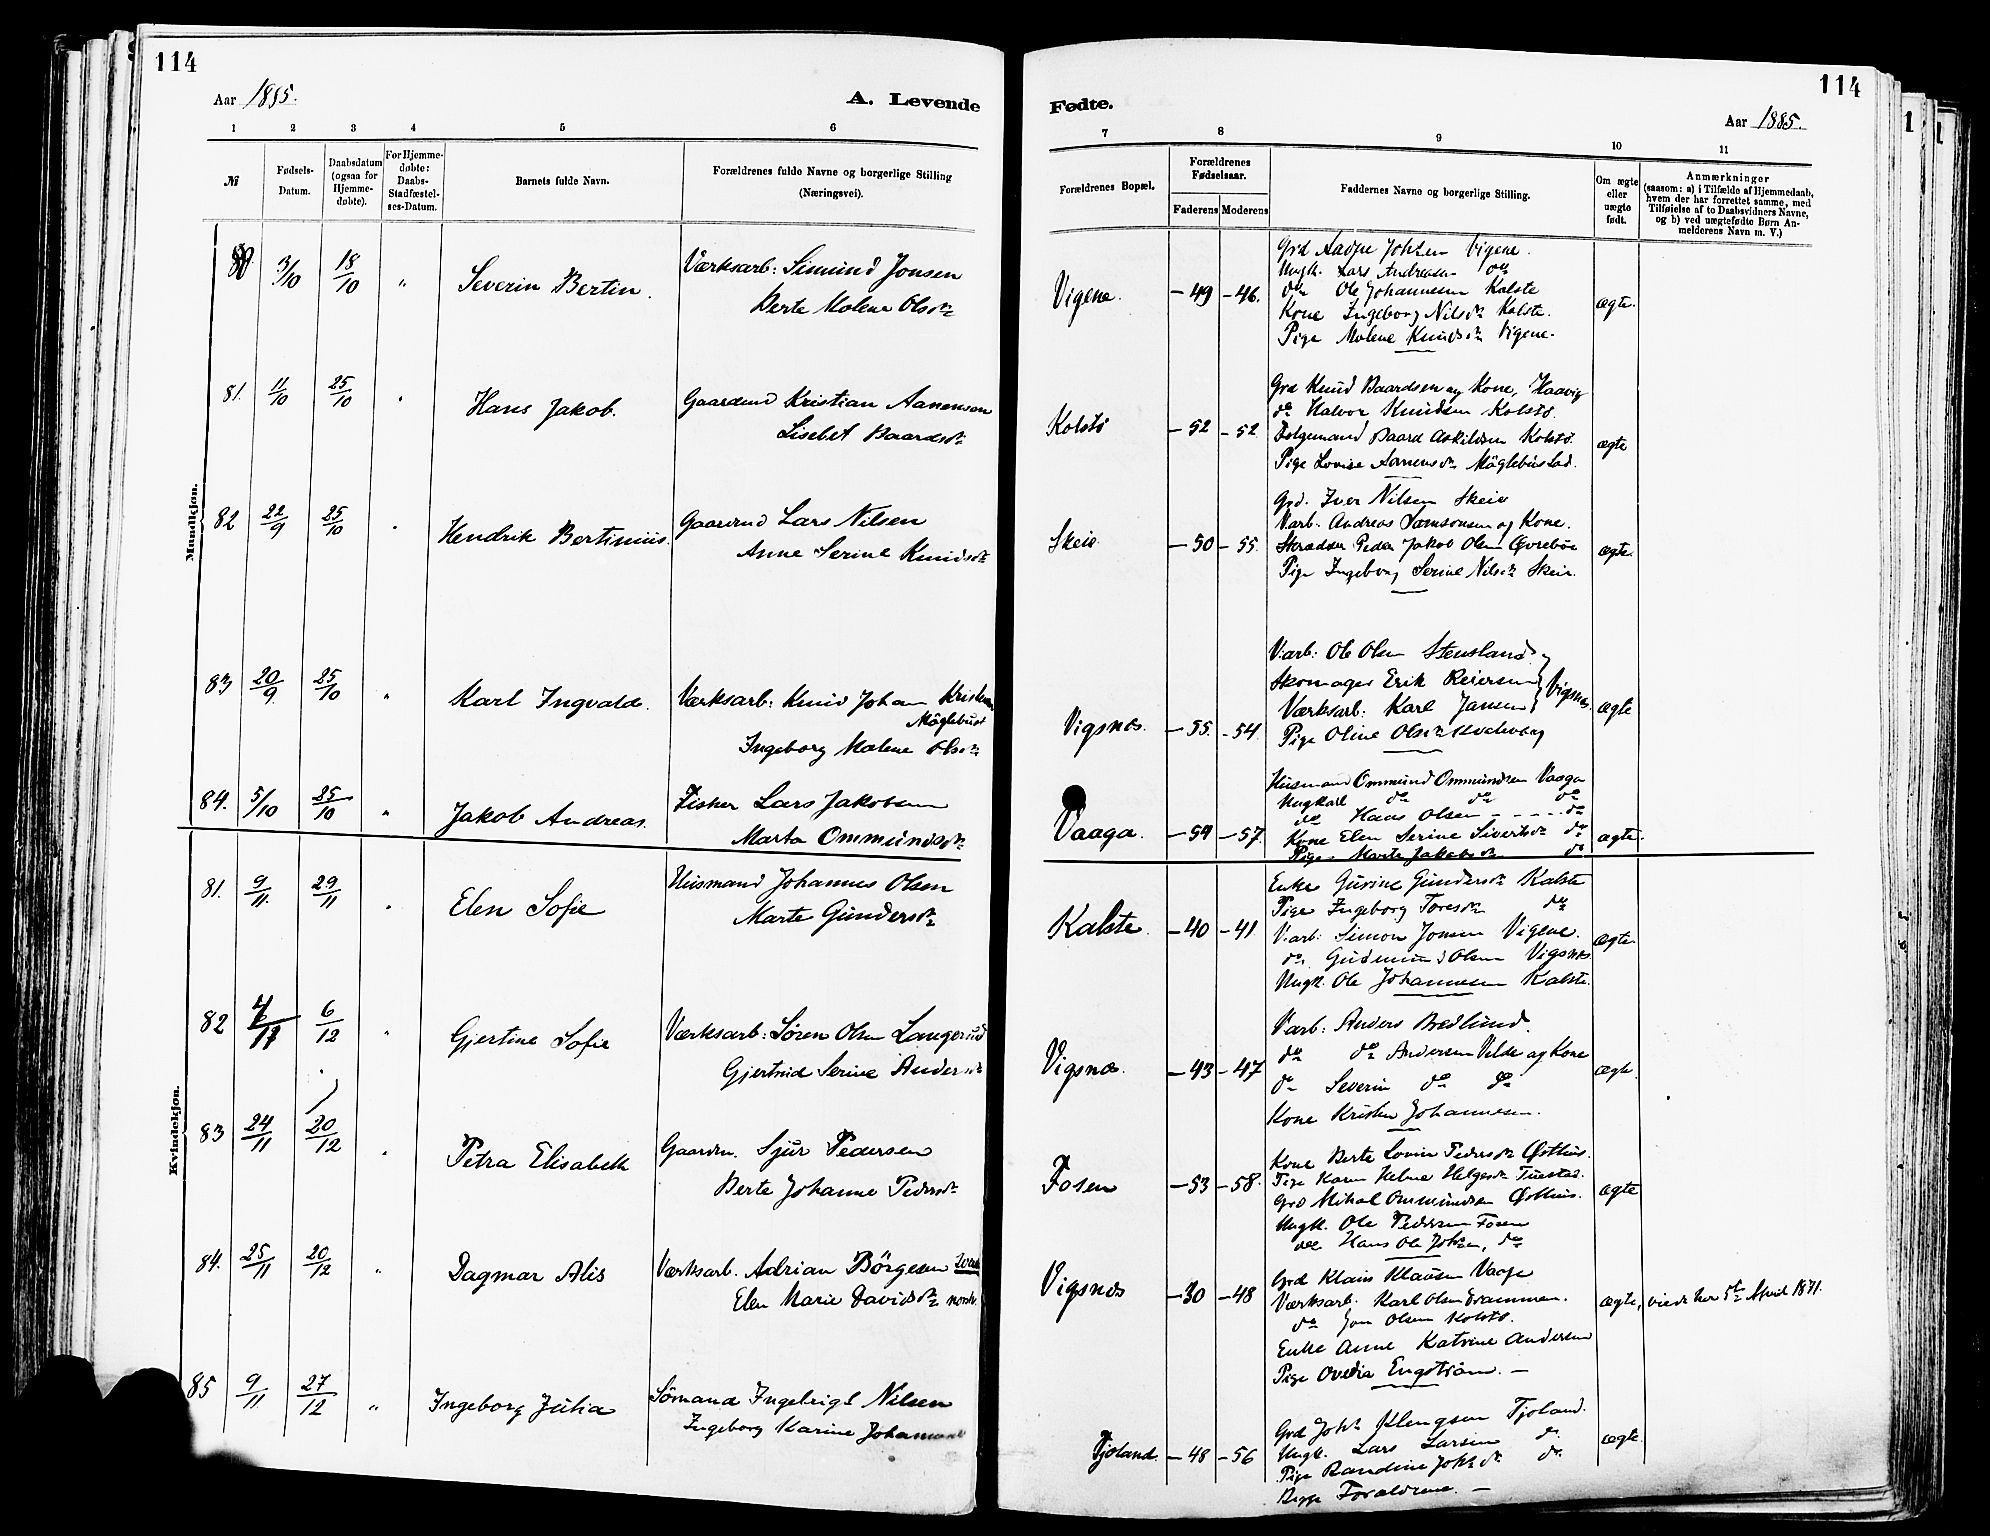 114
Aar 1885.
A. Levende
1 2 3 4 5 6
№
Fødsels-
Datum.
Daabsdatum
(ogsaa for
Hjemme-
døbte).
For Hjemme-
døbte:
Daabs-
Stadfæstel-
ses-Datum.
Barnets fulde Navn.
Forældrenes fulde Navne og borgerlige Stilling
(Næringsvei).
Mandkjøn.
80 3/10 18/10 " Severin Bertin. Værksarb: Simund Jonsen
Berte Malene Olsdtr
81. 11/10 25/10 " Hans Jakob. Gaardmd Kristian Aanensen
Lisebet Baardsdtr
82 22/9 25/10 " Hendrik Bertinius. Gaardmd Lars Nilsen
Anne Serine Knudsdtr
83 20/9 25/10 " Karl Ingvald. Værksarb: Knud Johan Kristensen
Møglebust
Ingeborg Malene Olsdtr
84. 5/10 25/10 " Jakob Andreas. Fisker Lars Jakobsen
Marta Ommundsdtr
Kvindekjøn.
81. 9/11 29/11 " Elen Sofie Husmand Johannes Olsen
Marte Gundersdtr
82 6/12 " Gjertine Sofie Værksarb: Søren Olsen Langerud
Gjertrud Serine Andersdtr
83 24/11 20/12 " Petra Elisabeth Gaardm. Sjur Pedersen
Berte Johanne Pedersdtr
84. 25/11 20/12 " Dagmar Alis Værksarb. Adrian Börgesen
Elen Marie Davidsdtr norsk.
85 9/11 27/12 " Ingeborg Julia Sømand Ingebrigt Nilsen
Ingeborg Karine
114
Fødte.
Aar 1885.
7 8 9 10 11
Forældrenes Bopæl.
Forældrenes
Fødselsaar.
Faderens Moderens
Faddernes Navne og borgerlige Stilling.
Om ægte
eller
uægte
født.
Anmærkninger
(saasom: a) i Tilfælde af Hjemmedaab,
hvem der har forrettet samme, med
Tilføielse af to Daabsvidners Navne,
og b) ved uægtefødte Børn An-
melderens Navn m. V.)
Grd Aadne Johsen Vigene.
Ungk. Lars Andreasen do
Vigene. — 49 — 46. do Ole Johannesen Kalste ægte.
Kone Ingeborg Nilsdtr Kalste.
Pige Malene Knudsdtr Vigene.
Grd Knud Baardsen og Kone, Haavig
do Halvor Knudsen Kolstø.
Kolstø — 52 — 52 Folgemand Baard Askildsen Kolstø. ægte
Pige Lovise Aanensdtr
Grd. Iver Nilsen Skeie
Varb. Andreas Samsonsen og Kone.
Skeie — 50 — 55. Skrædder Peder Jakob Olsen Øvrebø ægte.
Pige Ingeborg Serine Nilsdtr Skeie.
Varb: Ole Olsen Stensland
Skomager Erik Reiersen } Vigsnæs.
Vigsnæs. — 55. — 54. Værksarb: Karl Jansen ægte
Pige Oline Olsdtr
Husmand Ommund Ommundsen Vaaga
Ungkarl do do do
do Hans Olsen - - - - do
Vaaga. — 54 — 57. Kone Elen Serine Sivertsdtr do ægte.
Pige Marta Jakobsdtr do
Enke Gurine Gundersdtr Kalste
Pige Ingeborg Toresdtr do
Kalste. — 40 — 41 Varb: Simon Jonsen Vigene. ægte.
do. Gudmund Olsen Vigsnæs
Ungk. Ole Johannesen Kalste.
Varb: Anders Bredlund.
do do Andersen Velde og Kone
Vigsnæs. — 43 — 47 do Severin do do ægte.
Kone Kristen Johannesen.
Kone Berte Lovise Pedersdtr Østhus.
Pige Karen Helene Helgesdtr
Fosen — 53 — 58. Grd Mikal Ommundsen Østhus. ægte
Ungk. Ole Pedersen Fosen
do Hans Ole Johsen, do
Grd Klaus Klausen Vaage
Vigsnæs — 30 — 48 Værksarb. Karl Olsen ægte, viede her 5te April 1871.
do Jon Olsen Kolstø.
Enke Anne Katrine Andersen
Pige Ovedia Engstrøm. —
Grd Johs Klengsen Tjoland.
Tjoland. — 48 — 56 Ungk. Lars Larsen do. ægte.
Pige Randine Johsdtr do.
Begge Forældrene. —